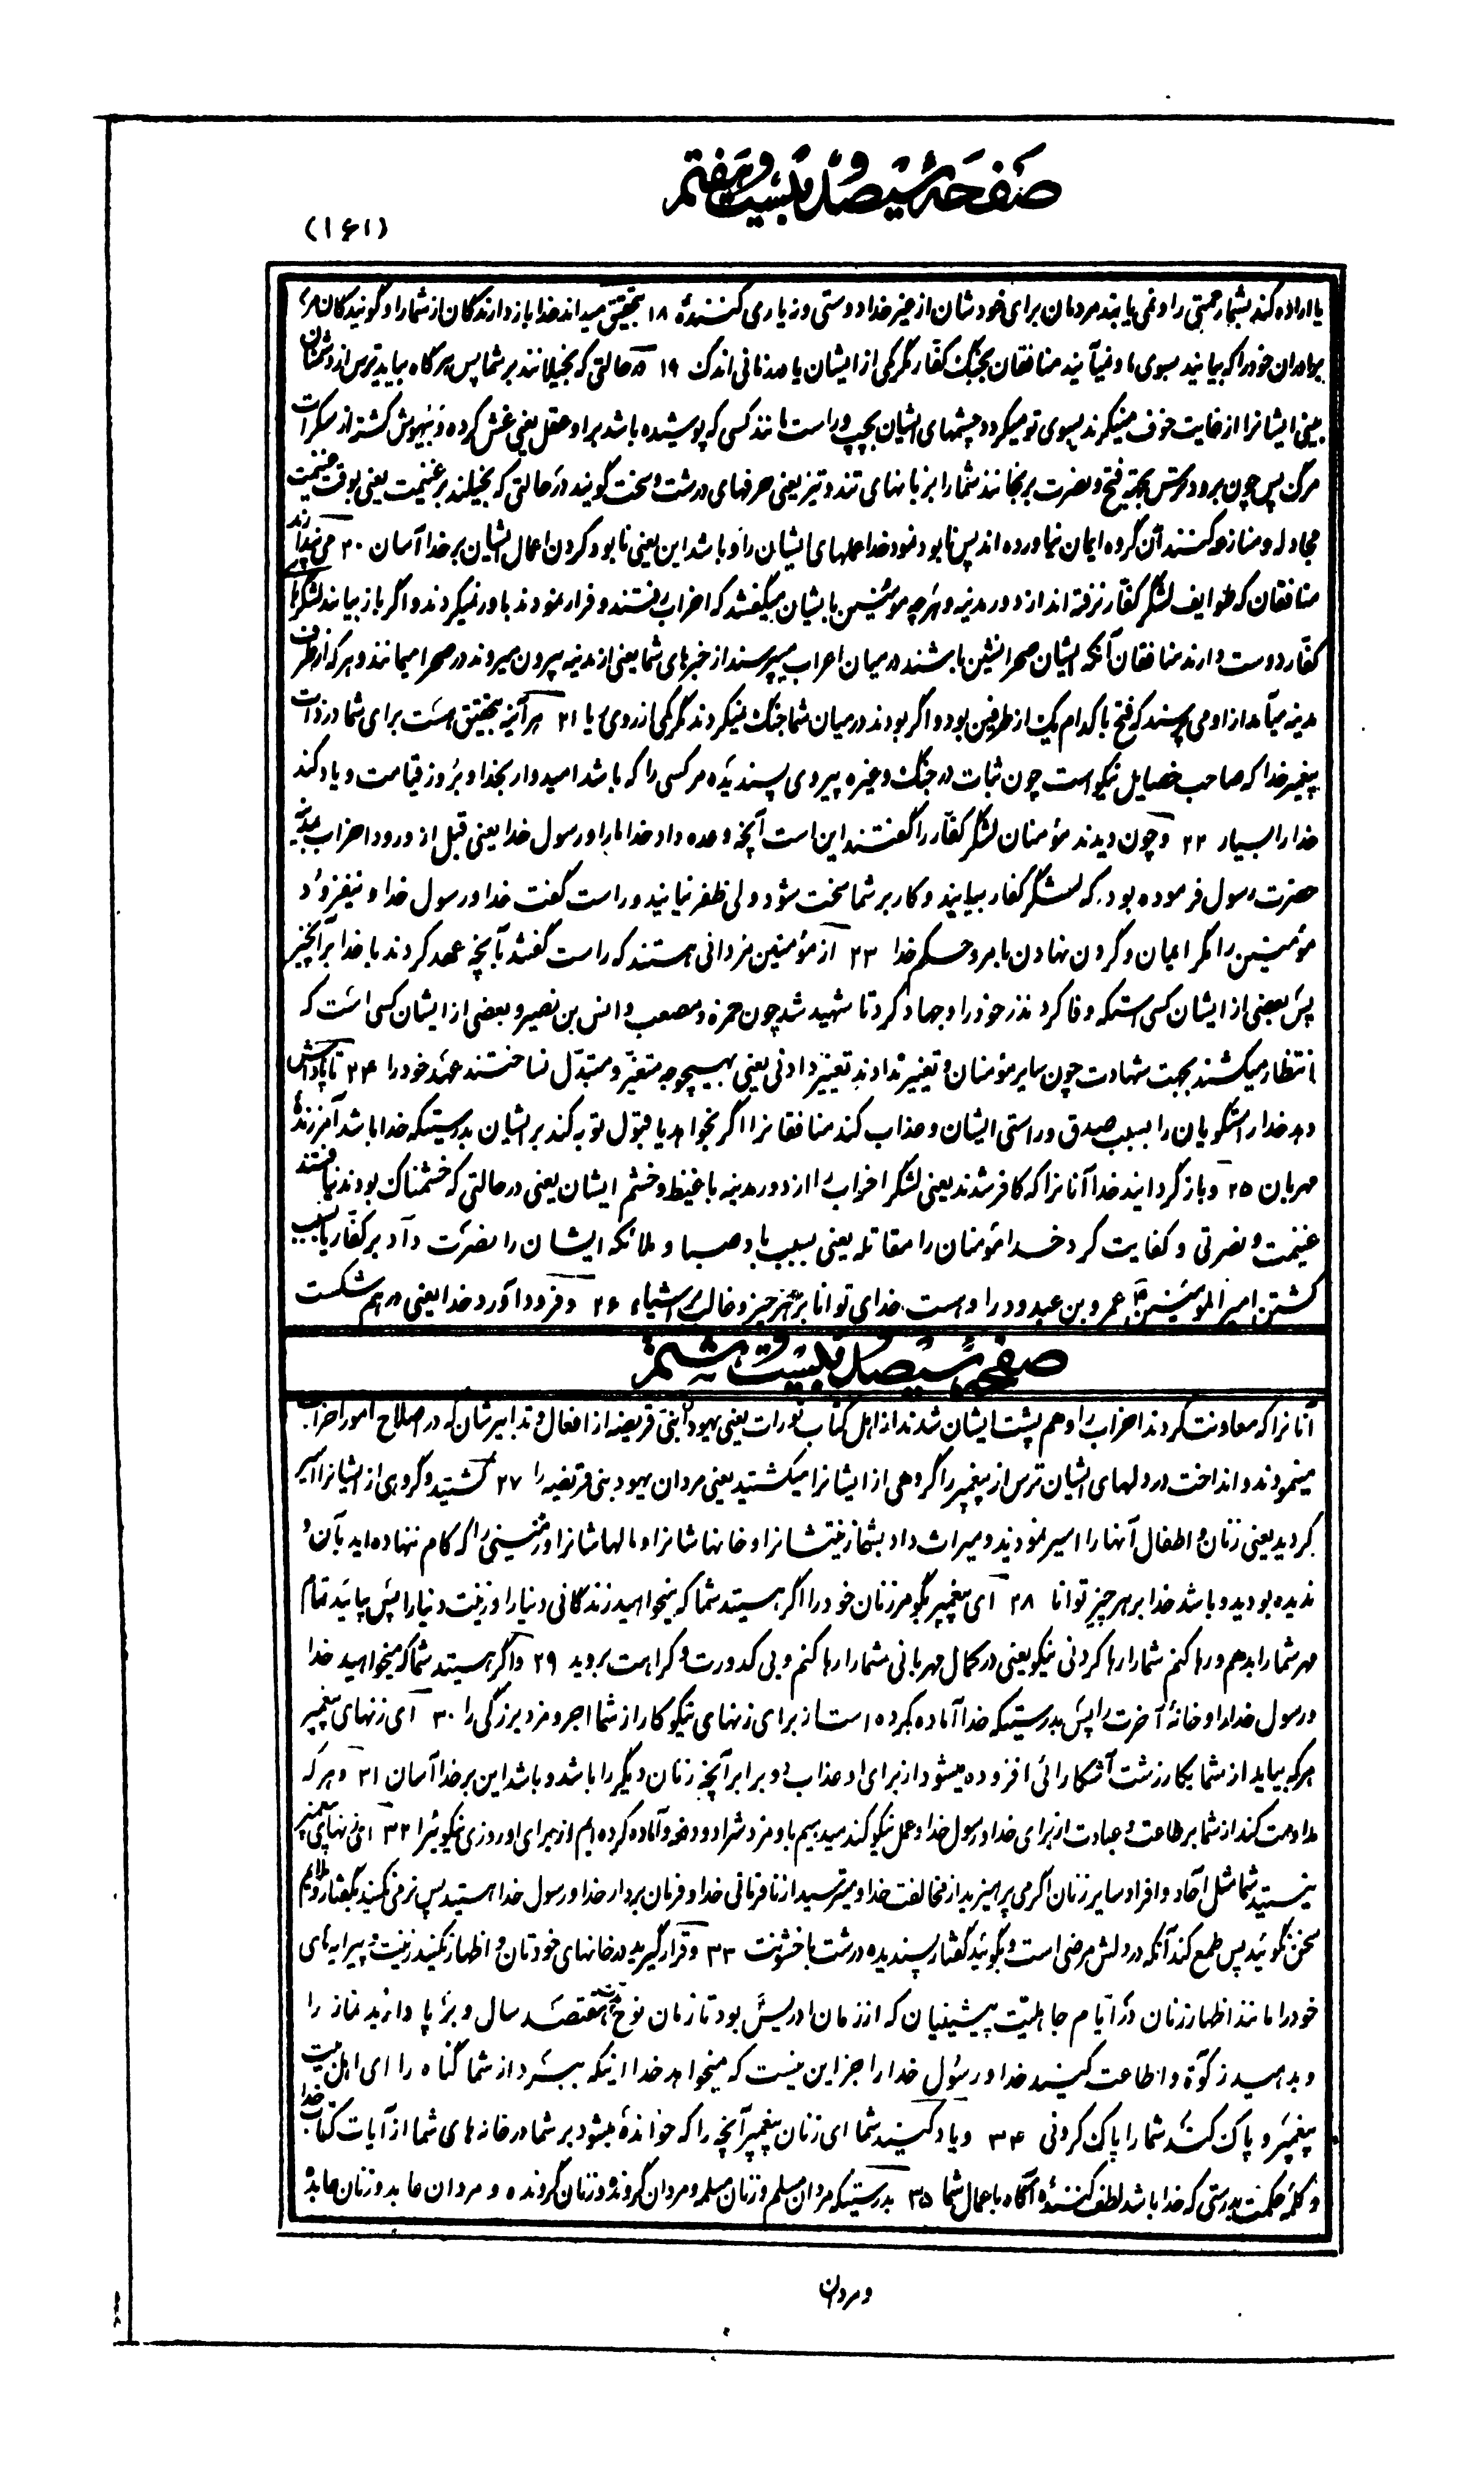 صفحه سیصد و بیست و هفتم
(۱۶۱)
یا اراده کند بشما رحمتی را و نمی یابند مردمان برای خودشان از غیر خدا دوستی و نه یاری کنندهٔ ۱۸ بتحقیق میداند خدا بازدارندگان از شما را و گویندگان مر
برادران خود را که بیائید بسوی ما و نمیآیند منافقان بجنگ کفّار مگر کمی از ایشان یا در زمانی اندک ۱۹ در حالتی که بخیلانند بر شما پس هر گاه بیاید ترس از دشمنان
بینی ایشانرا از غایت خوف مینگرند بسوی تو میگردد چشمهای ایشان بچپ و راست مانند کسی که پوشیده باشد بر او عقل یعنی غش کرده و بیهوش گشته از سکرات
مرگ پس چون برود ترس بجهة فتح و نصرت برنجانند شما را بزبانهای تند و تیز یعنی حرفهای درشت و سخت گویند در حالتی که بخیلند بر غنیمت یعنی بوقت غنیمت
مجادله و منازعه کنند آن گروه ایمان نیاورده اند پس نابود نمود خدا عملهای ایشان را و باشد این یعنی نابود کردن اعمال ایشان بر خدا آسان ۲۰ می پندارند
منافقان که طوایف لشگر کفّار نرفته اند از دور مدینه و هرچه مؤمنین بایشان میگفتند که احزاب رفتند و فرار نمودند باور نمیکردند و اگر باز بیایند لشگرها
کفّار دوست دارند منافقان آنکه ایشان صحرانشین باشند در میان اعراب میپرسند از خبرهای شما یعنی از مدینه بیرون میروند در صحرا میمانند و هر که از طرف
مدینه میآمد از او می پرسند که فتح با کدام یک از طرفین بود و اگر بودند در میان شما جنگ نمیکردند مگر کمی از روی ریا ۲۱ هر آینه بتحقیق هست برای شما در ذات
پیغمبر خدا که صاحب خصایل نیکو است چون ثبات در جنگ و غیره پیروی پسندیده مر کسی را که باشد امیدوار بخدا و بروز قیامت و یاد کند
خدا را بسیار ۲۲ و چون دیدند مؤمنان لشگر کفّار را گفتند این است آنچه وعده داد خدا ما را و رسول خدا یعنی قبل از ورود احزاب بمدینه
حضرت رسول فرموده بود که لشگر کفار بیایند و کار بر شما سخت شود ولی ظفر نیابند و راست گفت خدا و رسول خدا و نیفزود
مؤمنین را مگر ایمان و گردن نهادن بامر و حکم خدا ۲۳ از مؤمنین مردانی هستند که راست گفتند بآنچه عهد کردند با خدا بر آنچیز
پس بعضی از ایشان کسی استکه وفا کرد نذر خود را و جهاد کرد تا شهید شد چون حمزه و مصعب و انس بن نصیر و بعضی از ایشان کسی است که
انتظار میکشند بجهت شهادت چون سایر مؤمنان و تغییر ندادند تغییر دادنی یعنی بهیچوجه متغیّر و متبدّل نساختند عهد خود را ۲۴ تا پاداش
دهد خدا راستگویان را بسبب صدق و راستی ایشان و عذاب کند منافقانرا اگر بخواهد یا قبول توبه کند بر ایشان بدرستیکه خدا باشد آمرزندهٔ
مهربان ۲۵ و باز گردانید خدا آنانرا که کافر شدند یعنی لشگر احزاب را از دور مدینه با غیظ و خشم ایشان یعنی در حالتی که خشمناک بودند نیافتند
غنیمت و نصرتی و کفایت کرد خدا مؤمنان را مقاتله یعنی بسبب باد صبا و ملائکه ایشان را نصرت داد بر کفّار یا بسبب
کشتن امیرالمؤمنین عمرو بن عبدود را و هست خدای توانا بر هر چیز و غالب بر اشیاء ۲۶ و فرود آورد خدا یعنی در هم شکست
صفحه سیصد و بیست و هشتم
آنانرا که معاونت کردند احزاب را و هم پشت ایشان شدند از اهل کتاب تورات یعنی یهودان بنی قریضه از افعال و تدابیرشان که در اصلاح امور احزاب
مینمودند و انداخت در دلهای ایشان ترس از پیغمبر را گروهی از ایشانرا میکشتید یعنی مردان یهود بنی قریضه را ۲۷ کشتید و گروهی از ایشانرا اسیر
کردید یعنی زنان و اطفال آنها را اسیر نمودید و میراث داد بشما زمینشانرا و خانهاشانرا و مالهاشانرا و زمینی را که گام ننهاده اید بآن و
ندیده بودید و باشد خدا بر هر چیز توانا ۲۸ ای پیغمبر بگو مر زنان خود را اگر هستید شما که میخواهید زندگانی دنیا را و زینت دنیا را پس بیائید تمام
مهر شما را بدهم و رها کنم شما را رها کردنی نیکو یعنی در کمال مهربانی شما را رها کنم و بی کدورت و کراهت بروید ۲۹ و اگر هستید شما که میخواهید خدا
و رسول خدا را و خانهٔ آخرت را پس بدرستیکه خدا آماده کرده است از برای زنهای نیکوکار از شما اجر و مزد بزرگی را ۳۰ ای زنهای پیغمبر
هر که بیاید از شما بکار زشت آشکارائی افزوده میشود از برای او عذاب دو برابر آنچه زنان دیگر را باشد و باشد این بر خدا آسان ۳۱ و هر که
مداومت کند از شما بر طاعت و عبادت از برای خدا و رسول خدا و عمل نیکو کند میدهیم باو مزدش را دو دفعه و آماده کرده ایم از برای او روزی نیکوئیرا ۳۲ ای زنهای پیغمبر
نیستید شما مثل آحاد و افراد سایر زنان اگر می پرهیزید از مخالفت خدا و میترسید از نافرمانی خدا و فرمان بردار خدا و رسول خدا هستید پس نرمی نکنید بگفتار و ملایم
سخن نگوئید پس طمع کند آنکه در دلش مرضی است و بگوئید گفتار پسندیده درشت با خشونت ۳۳ و قرار گیرید در خانهای خودتان و اظهار نکنید زینت و پیرایه های
خود را مانند اظهار زنان در ایّام جاهلیّت پیشینیان که از زمان ادریس بود تا زمان نوح هفتصد سال و بر پا دارید نماز را
و بدهید زکوة و اطاعت کنید خدا و رسول خدا را جز این نیست که میخواهد خدا اینکه ببرد از شما گناه را ای اهل بیت
پیغمبر و پاک کند شما را پاک کردنی ۳۴ و یاد کنید شما ای زنان پیغمبر آنچه را که خواندهٔ میشود بر شما در خانه های شما از آیات کتاب خدا
و کلمهٔ حکمت بدرستی که خدا باشد لطف کنندهٔ آگاه باعمال شما ۳۵ بدرستیکه مردان مسلم و زنان مسلمه و مردان گرونده و زنان گرونده و مردان عابد و زنان عابده
و مردان